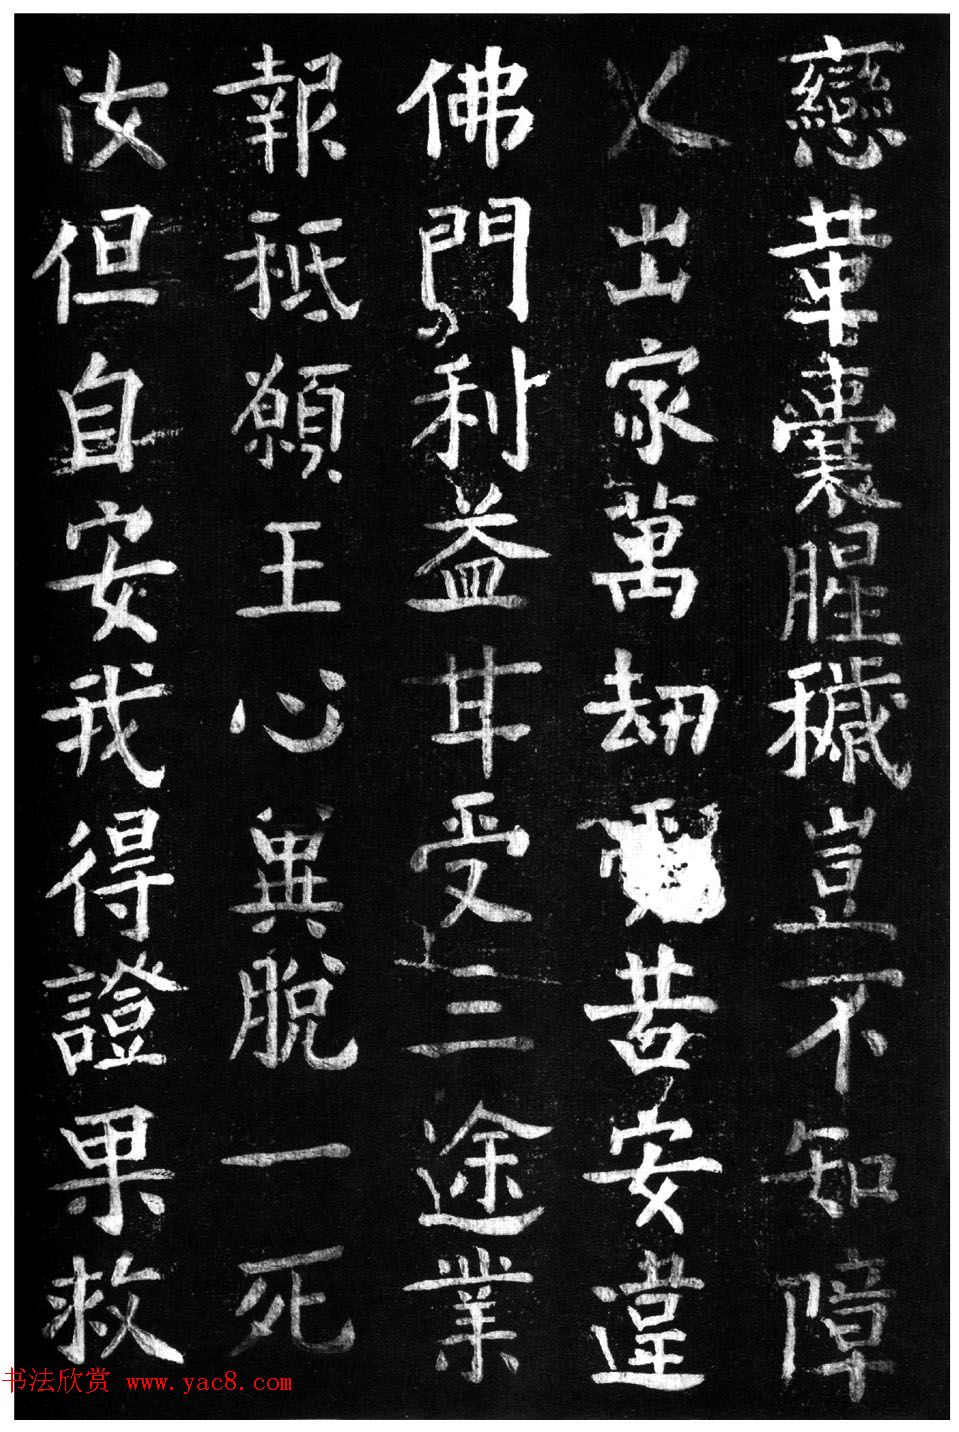 戀革囊腥穢豈不知障
人出家萬劫苦安違
佛門利益甘受三途業
報秪願王心冀脫一死
汝但自安我得證果救
书法欣赏 www.yac8.com